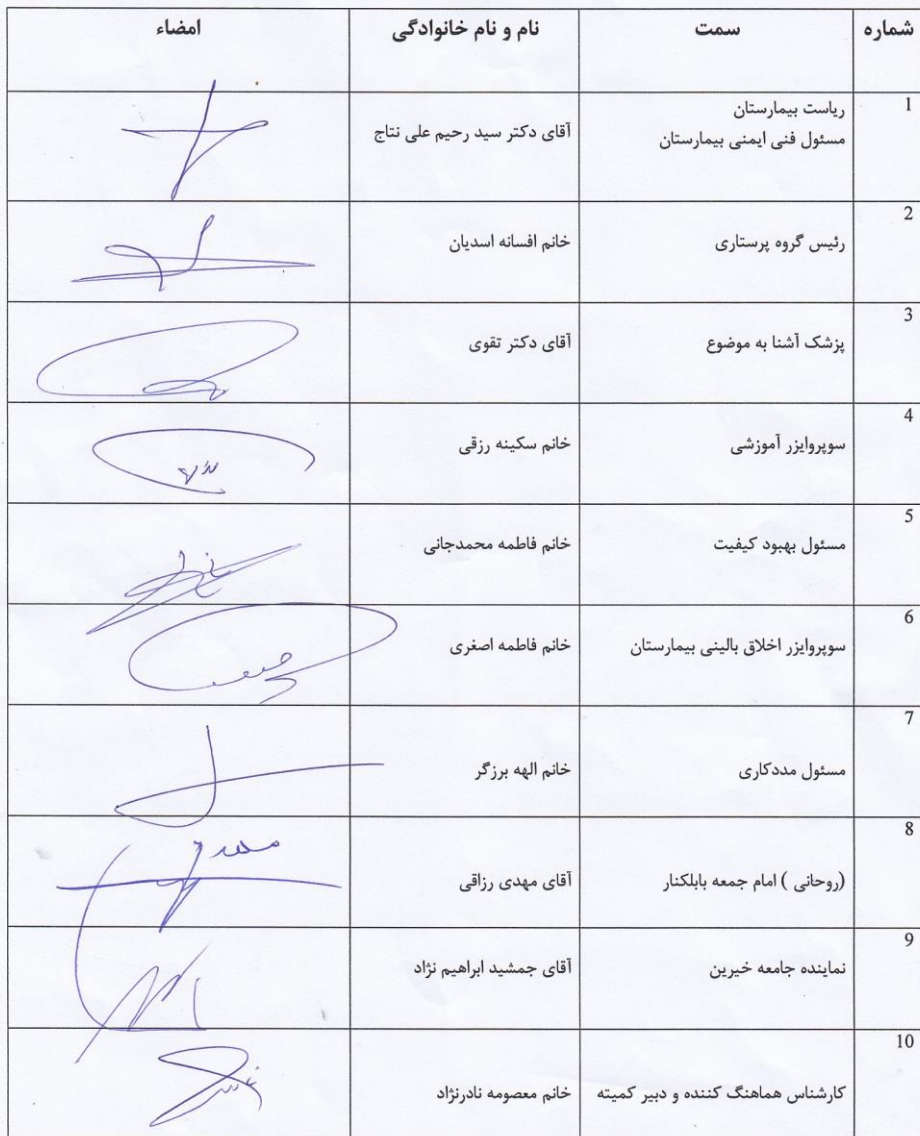 شماره سمت نام و نام خانوادگی امضاء
1 ریاست بیمارستان
مسئول فنی ایمنی بیمارستان آقای دکتر سید رحیم علی نتاج
2 رئیس گروه پرستاری خانم افسانه اسدیان
3 پزشک آشنا به موضوع آقای دکتر تقوی
4 سوپروایزر آموزشی خانم سکینه رزقی
5 مسئول بهبود کیفیت خانم فاطمه محمدجانی
6 سوپروایزر اخلاق بالینی بیمارستان خانم فاطمه اصغری
7 مسئول مددکاری خانم الهه برزگر
8 (روحانی ) امام جمعه بابلکنار آقای مهدی رزاقی
9 نماینده جامعه خیرین آقای جمشید ابراهیم نژاد
10 کارشناس هماهنگ کننده و دبیر کمیته خانم معصومه نادرنژاد